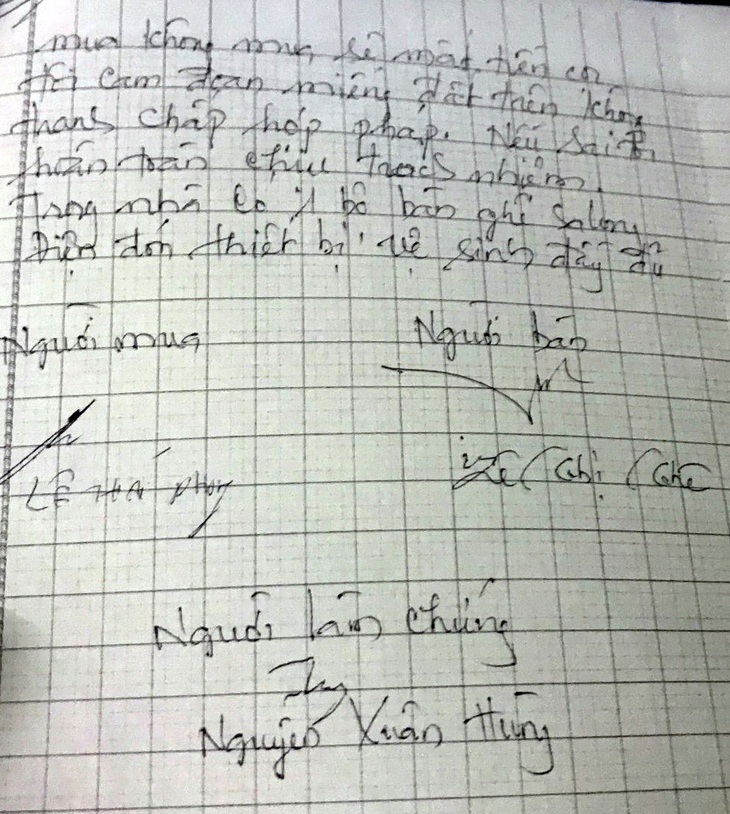 mua không mua sẽ mất tiền cọc
tôi cam đoan miếng đất trên không
thanh chấp hợp pháp. Nếu sai tôi
hoàn toàn chịu trách nhiệm.
Trong nhà có 1 bộ bàn ghế Salong
Điện đóm thiết bị vệ sinh đầy đủ
Người mua Người bán
Lê
Người làm chứng
Nguyễn Xuân Hùng